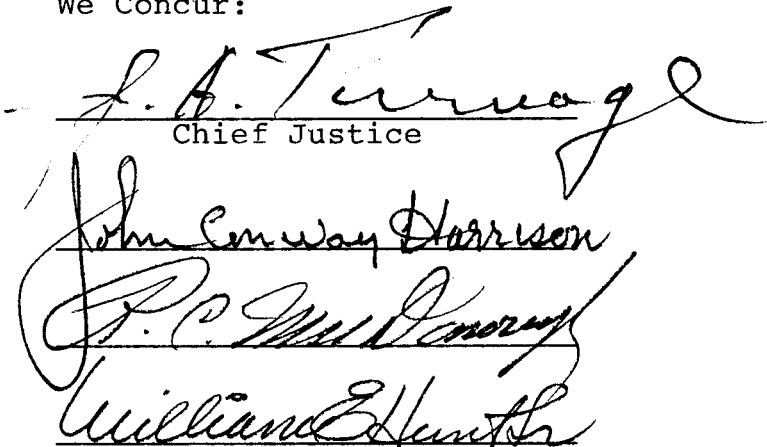 We Concur:
J. A. Turnage
Chief Justice
John Conway Harrison
R. C. McDonough
William E Hunt Sr